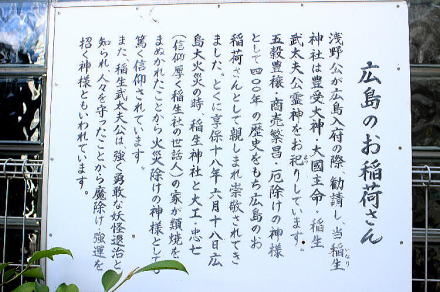 広島のお稲荷さん
浅野公が広島入府の際、勧請し、当稲生
神社は豊受大神・大國主命・稲生
武太夫公霊神をお祀りしています。
五穀豊穣・商売繁昌・厄除けの神様
として四〇〇年の歴史をもち広島のお
稲荷さんとして親しまれ崇敬されてき
ました。とくに享保十八年六月十八日広
島大火災の時、稲生神社と大工・忠七
(信仰厚く稲生社の世話人)の家が類焼を
まぬがれたことから火災除けの神様として
篤く信仰されています。
また、稲生武太夫公は強く勇敢な妖怪退治と
知られ人々を守ったことから魔除け・強運を
招く神様ともいわれています。